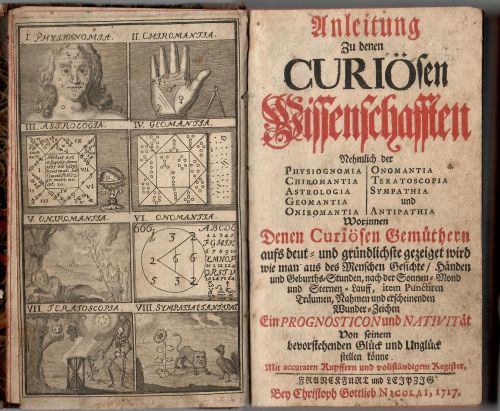 I. PHYSIOGNOMIA.
II. CHIROMANTIA.
III. ASTROLOGIA.
IV. GEOMANTIA.
V. ONIROMANTIA.
VI. ONOMANTIA.
666
1
6 3
2
5 3 2
A B C D E
F G H I K
VII TERATOSCOPIA
VIII. SYMPATH. ET ANTIPATH.
Anleitung
Zu denen
CURIÖsen
Wissenschafften
Nehmlich der
PHYSIOGNOMIA
CHIROMANTIA
ASTROLOGIA
GEOMANTIA
ONIROMANTIA
ONOMANTIA
TERATOSCOPIA
SYMPATHIA
und
ANTIPATHIA
Worinnen
Denen Curiösen Gemüthern
aufs deut- und gründlichste gezeiget wird
wie man aus des Menschen Gesichte/ Händen
und Geburths-Stunden, nach der Sonnen- Mond
und Sternen-Lauff, item Punctiren
Träumen, Nahmen und erscheinenden
Wunder-Zeichen
Ein PROGNOSTICON und NATIVITät
Von seinem
bevorstehenden Glück und Unglück
stellen könne.
Mit accuraten Kupffern und vollständigem Register.
FRANCKFURT und LEIPZIG
Bey Christoph Gottlieb NICOLAI, 1717.